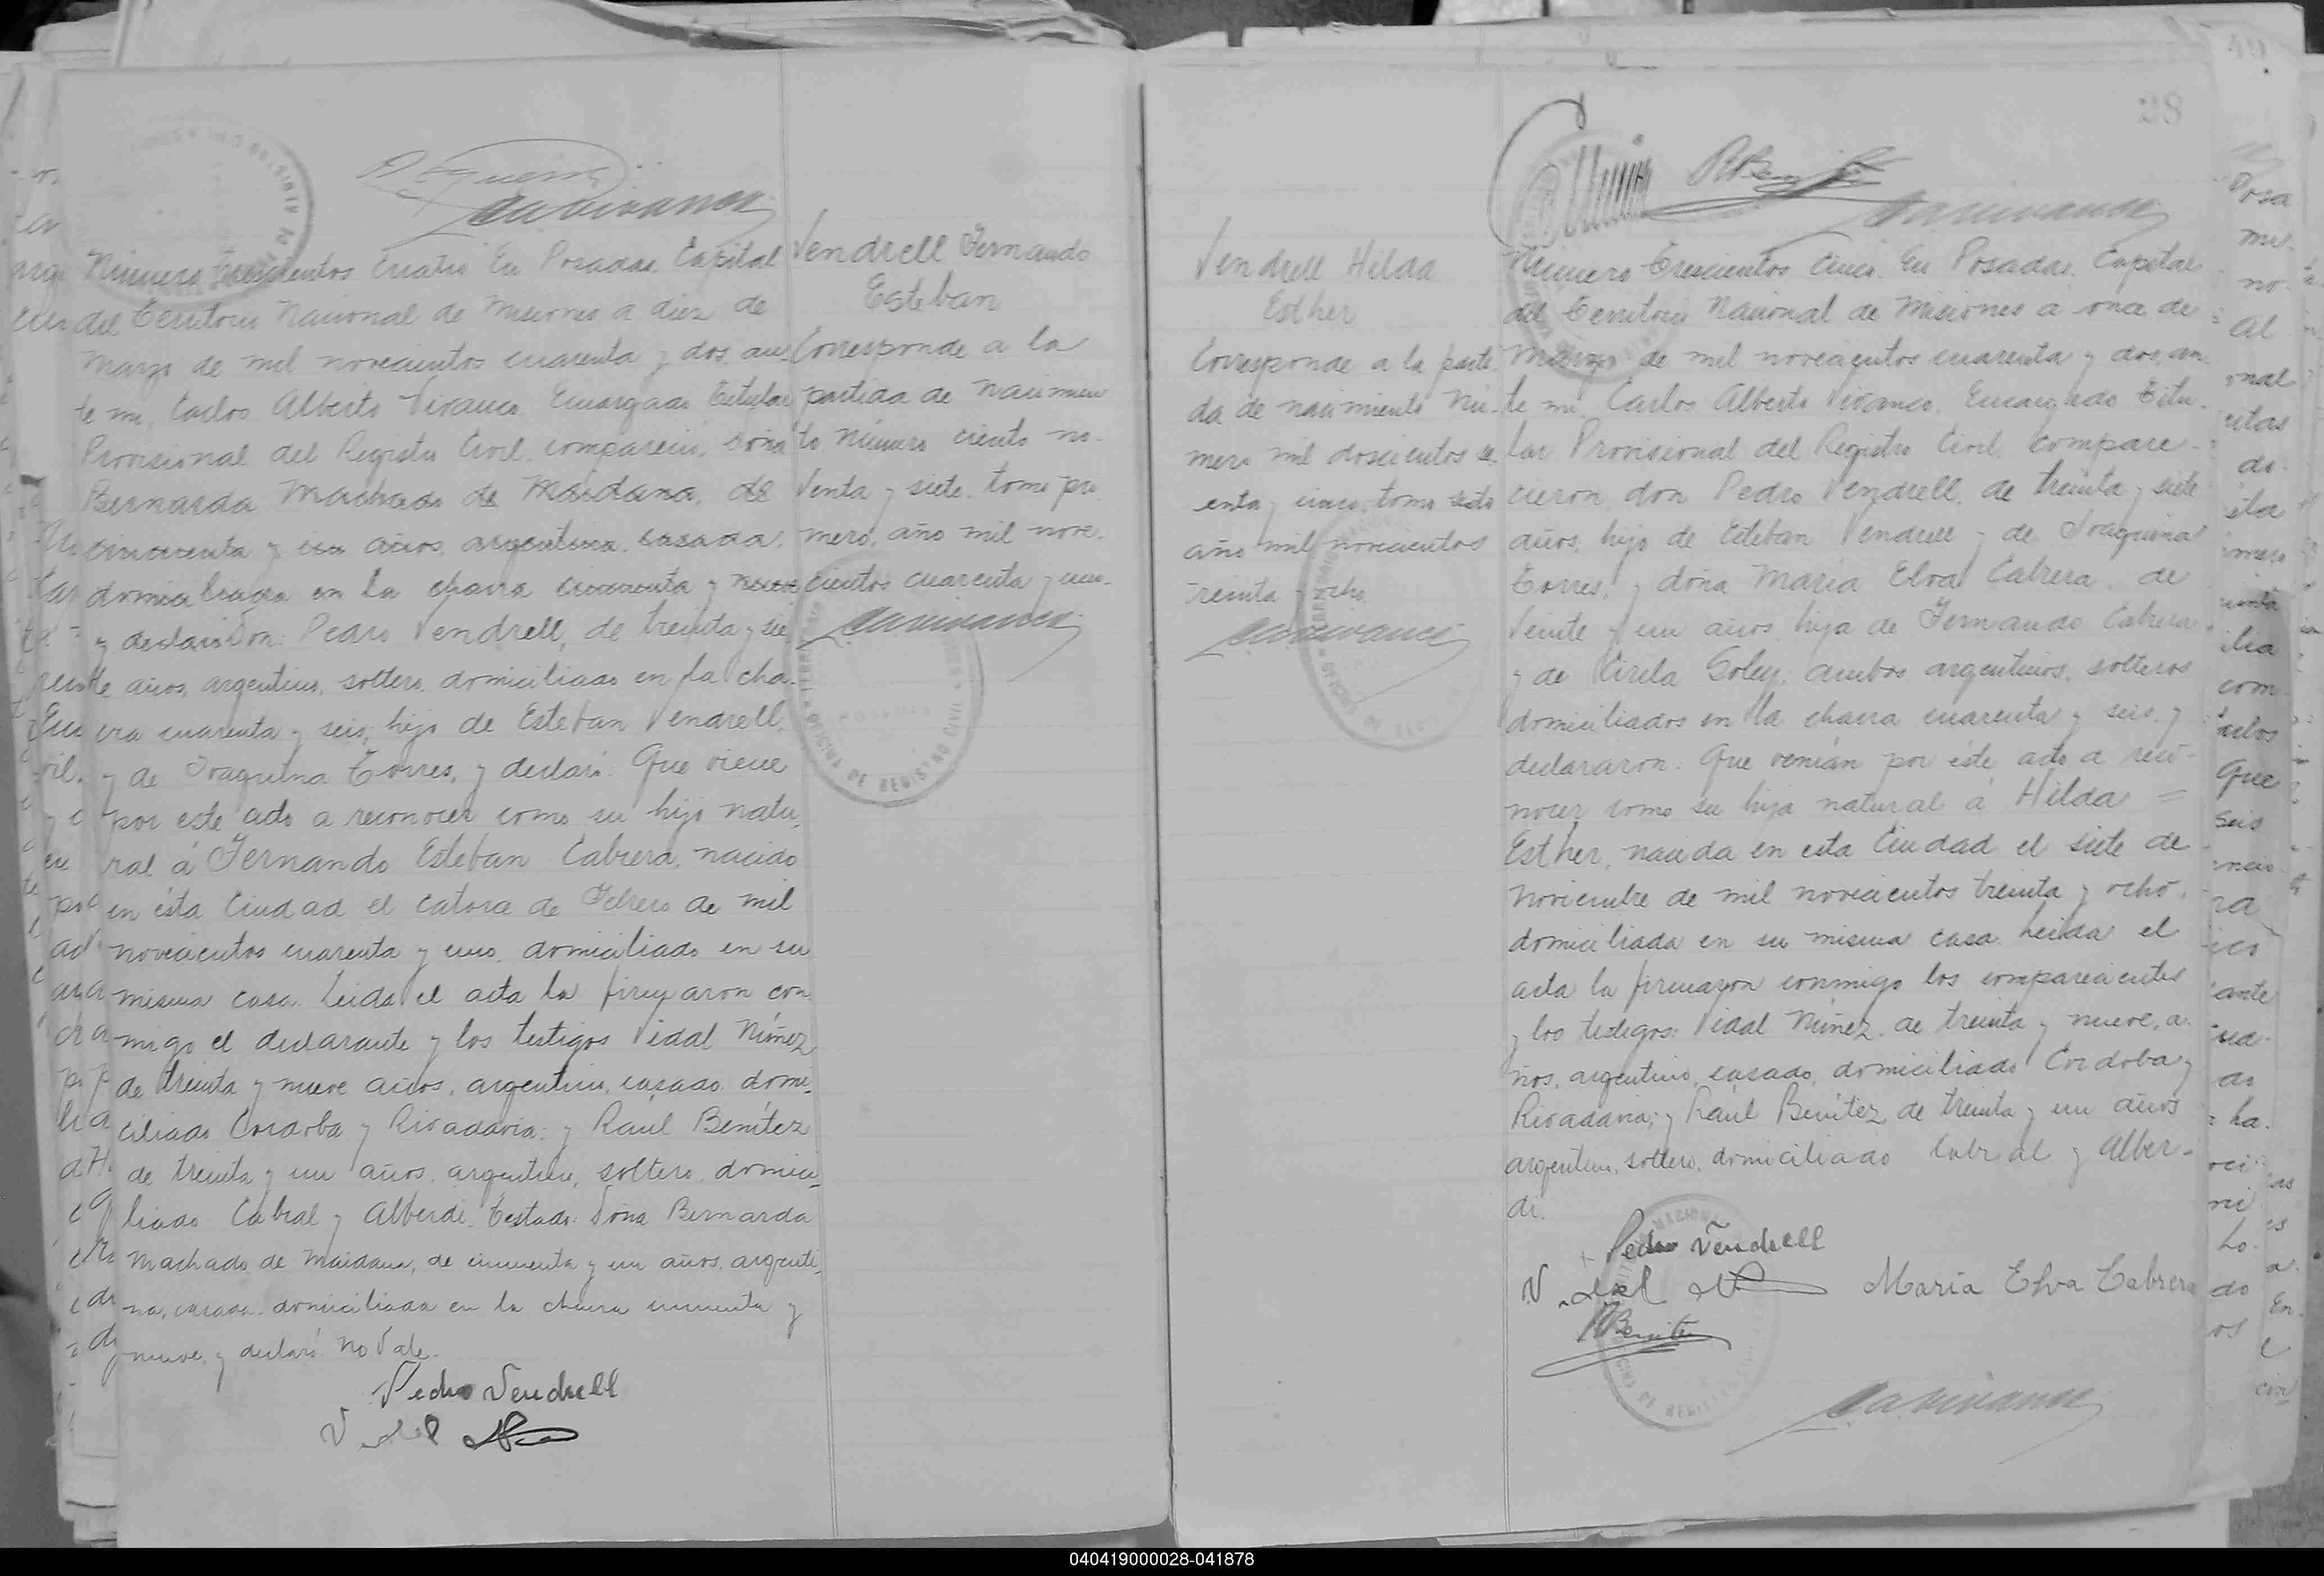 Número Trescientos Cuatro. En Posadas. Capital
del Territorio Nacional de Misiones a diez de
Marzo de mil novecientos cuarenta y dos. an-
te mi, Carlos Alberto Vivanco. Encargado Titular
Provisional del Registro Civil. compareció, doña
Bernarda Machado de Maidana, de
cincuenta y un años, argentina. casada.
domiciliada en la chacra cincuenta y nueve
y declaró Don: Pedro Vendrell, de treinta y sie
te años, argentino, soltero, domiciliado en la cha-
cra cuarenta y seis, hijo de Esteban Vendrell,
y de Joaquina Torres, y declaró: Que viene
por este acto a reconocer como su hijo natu-
ral á Fernando Esteban Cabrera, nacido
en ésta Ciudad el catorce de Febrero de mil
novecientos cuarenta y uno, domiciliado en su
misma casa. Leida el acta la firmaron con
migo el declarante y los testigos Vidal Núñez
de treinta y nueve años, argentino, casado, domi-
ciliado Cordoba y Rivadavia; y Raúl Benítez
de treinta y un años, argentino, soltero, domici-
liado Cabral y Alberdi. Testado: Doña Bernarda
Machado de Maidana, de cincuenta y un años, argenti-
na, casada. domiciliada en la chacra cincuenta y
nueve, y declaró. No Vale.
Pedro Vendrell
Vidal
Vendrell Fernando
Esteban
Corresponde a la
partida de nacimien
to Número ciento no-
venta y siete, tomo pri
mero, año mil nove-
cientos cuarenta y uno.
28
Vendrell Hilda
Esther
Corresponde a la parti
da de nacimiento Nú-
mero mil doscientos se
enta y cinco, tomo sexto
año mil novecientos
treinta y ocho
RBenítez
Número Trescientos Cinco. En Posadas. Capital
del Territorio Nacional de Misiones a once de
Marzo de mil novecientos cuarenta y dos, an-
te mi, Carlos Alberto Vivanco. Encargado Titu-
lar Provisional del Registro Civil, compare-
cieron, don Pedro Vendrell, de treinta y siete
años, hijo de Esteban Vendrell y de Joaquina
Torres, y doña María Elva Cabrera, de
veinte y un años, hija de Fernando Cabrera
y de Cirila Goley, ambos argentinos, solteros
domiciliados en la chacra cuarenta y seis y
declararon: Que venían por éste acto a reco-
nocer como su hija natural á Hilda =
Esther, nacida en esta Ciudad el siete de
Noviembre de mil novecientos treinta y ocho,
domiciliada en su misma casa. Leida el
acta la firmaron conmigo los comparecientes
y los testigos: Vidal Núñez, de treinta y nueve, a-
ños, argentino, casado, domiciliado Cordoba y
Rivadavia; y Raúl Benítez, de treinta y un años
argentino, soltero, domiciliado Cabral y Alber-
di.
Pedro Vendrell
Vidal
María Elva Cabrera
RBenítez
040419000028-041878